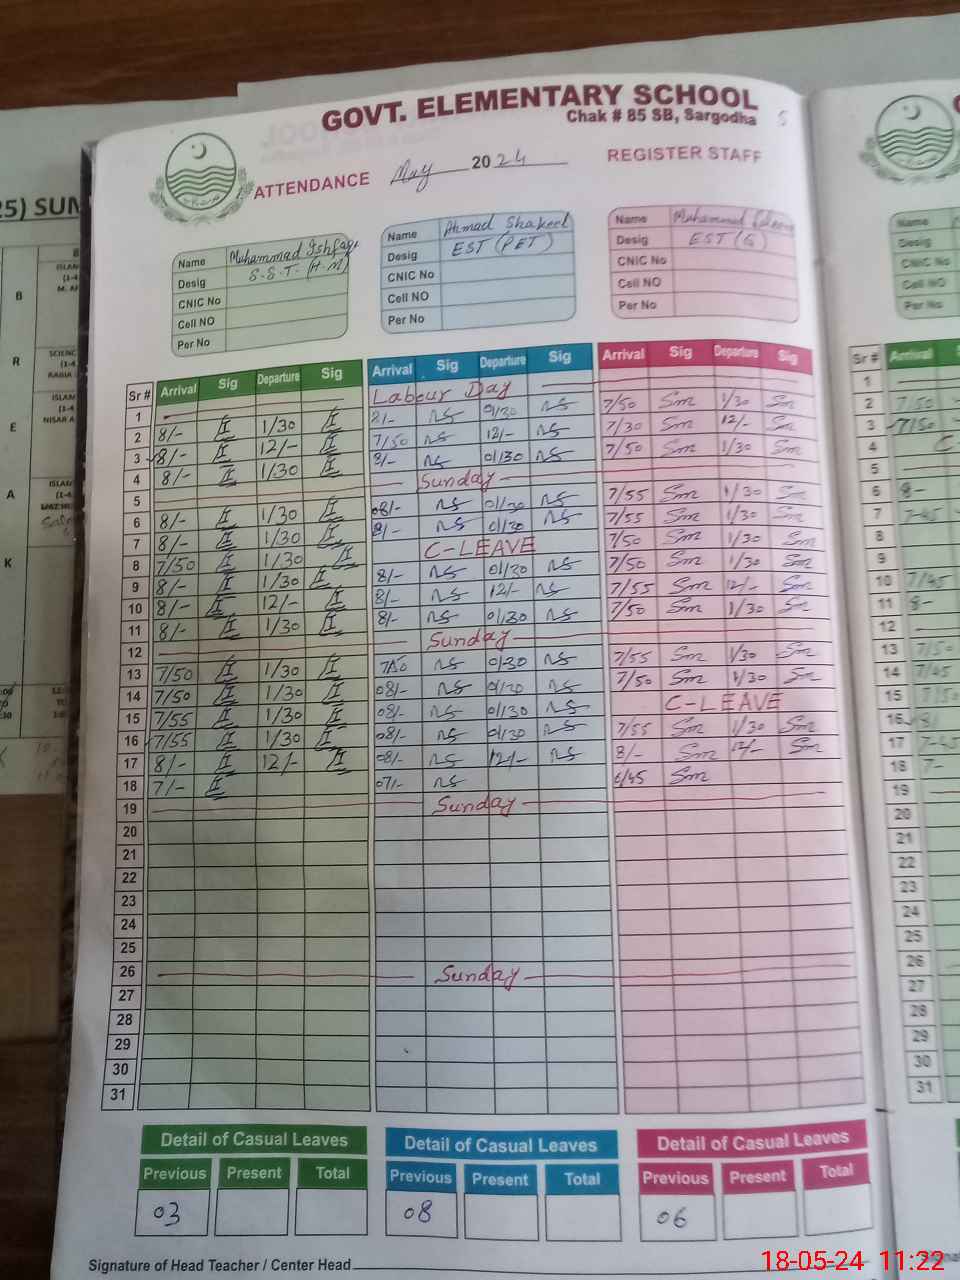 GOVT. ELEMENTARY SCHOOL
Chak # 85 SB, Sargodha
ATTENDANCE May 2024 REGISTER STAFF
Name Muhammad Ishfaq
Desig S.S.T. (H.M)
CNIC No
Cell NO
Per No
Name Ahmad Shakeel
Desig EST (PET)
CNIC No
Cell NO
Per No
Name Muhammad
Desig EST (G)
CNIC No
Cell NO
Per No
Sr # Arrival Sig Departure Sig Arrival Sig Departure Sig Arrival Sig Departure Sig
1 Labour Day
2 8/- 1/30 8/- 0/30 7/50 Sm 1/30 Sm
3 8/- 12/- 7/50 12/- 7/30 Sm 12/- Sm
4 8/- 1/30 8/- 01/30 7/50 Sm 1/30 Sm
5 Sunday
6 8/- 1/30 08/- 01/30 7/55 Sm 1/30 Sm
7 8/- 1/30 8/- 01/30 7/55 Sm 1/30 Sm
8 7/50 1/30 C-LEAVE 7/50 Sm 1/30 Sm
9 8/- 1/30 8/- 01/30 7/50 Sm 1/30 Sm
10 8/- 12/- 8/- 12/- 7/55 Sm 12/- Sm
11 8/- 1/30 8/- 01/30 7/50 Sm 1/30 Sm
12 Sunday
13 7/50 1/30 7/50 01/30 7/55 Sm 1/30 Sm
14 7/50 1/30 08/- 01/30 7/50 Sm 1/30 Sm
15 7/55 1/30 08/- 01/30 C-LEAVE
16 7/55 1/30 08/- 01/30 7/55 Sm 1/30 Sm
17 8/- 12/- 08/- 12/- 8/- Sm 12/- Sm
18 7/- 07/- 6/45 Sm
19 Sunday
20
21
22
23
24
25
26 Sunday
27
28
29
30
31
Detail of Casual Leaves Detail of Casual Leaves Detail of Casual Leaves
Previous Present Total Previous Present Total Previous Present Total
03 08 06
Signature of Head Teacher / Center Head
Sr # Arrival
1
2 7/50
3 7/50
4
5
6 8-
7 7-45
8
9
10 7/45
11 8-
12
13 7/50
14 7/45
15 7/50
16 8/
17 7-45
18 7-
19
20
21
22
23
24
25
26
27
28
29
30
31
25) SUM
B
R
E
A
K
18-05-24 11:22